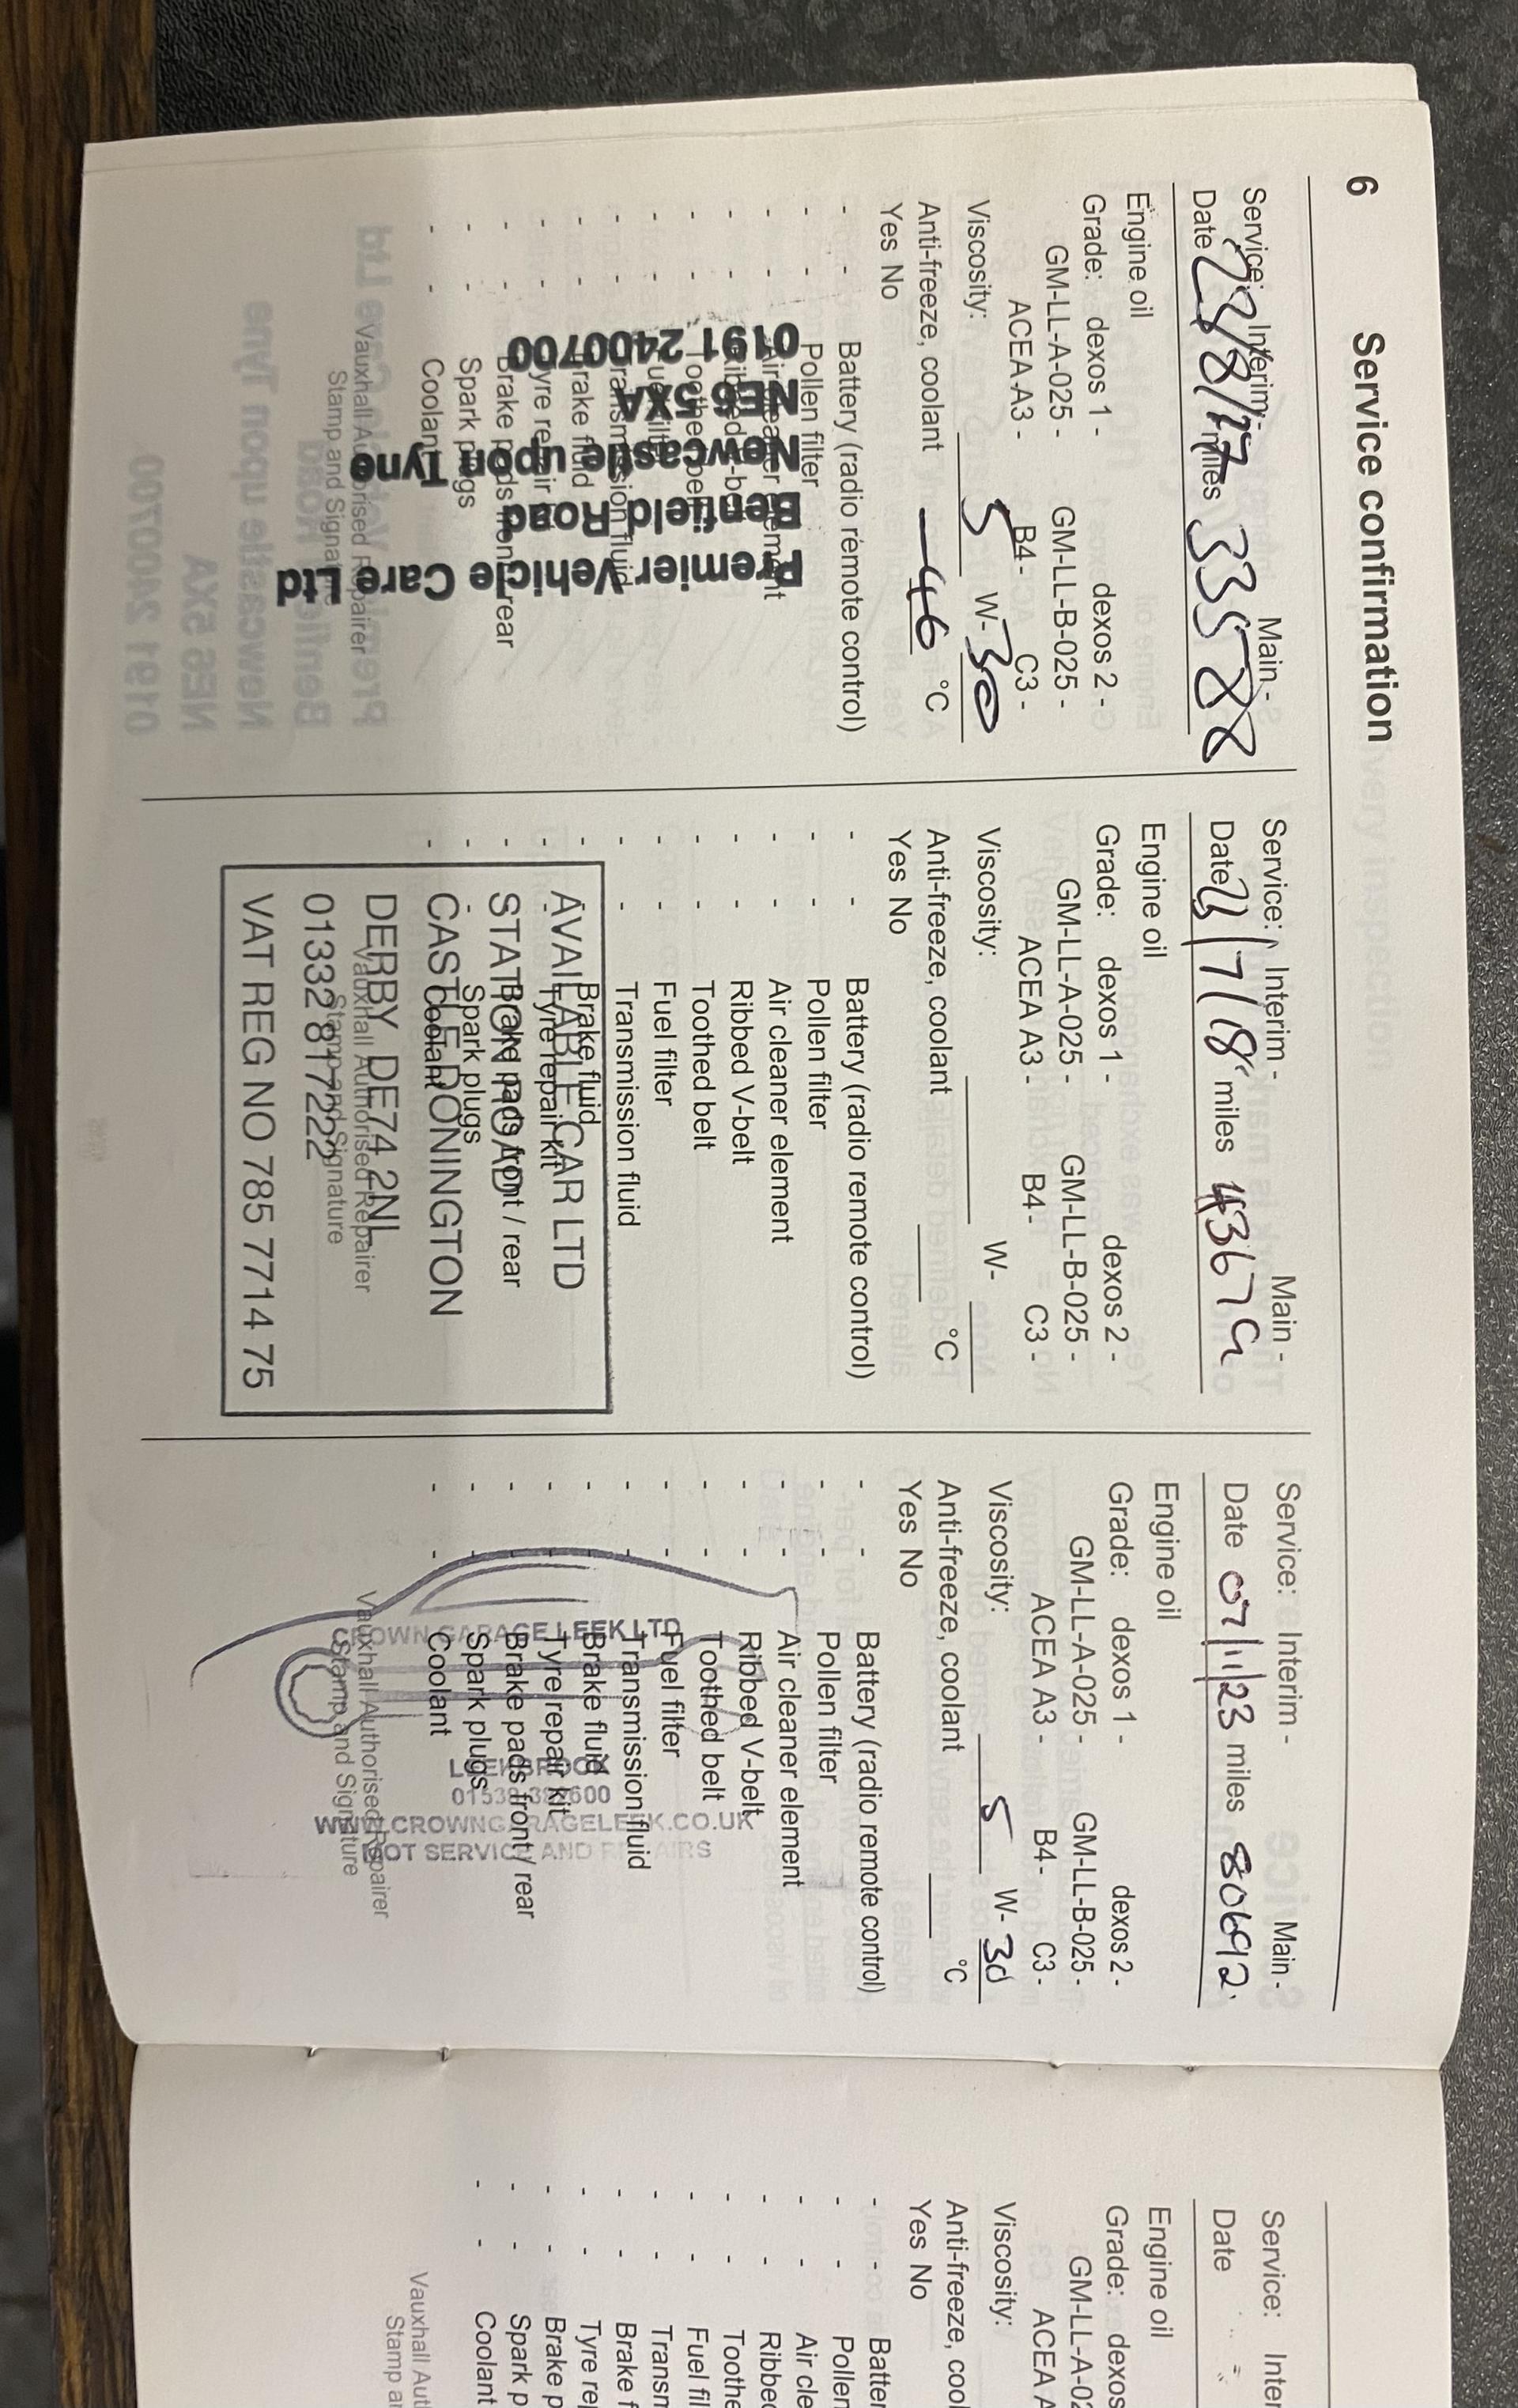 6 Service confirmation
Service: Interim - Main -
Date 23/8/17 miles 33588
Engine oil
Grade: dexos 1 - dexos 2 -
GM-LL-A-025 - GM-LL-B-025 -
ACEA A3 - B4 - C3 -
Viscosity: 5 W- 30
Anti-freeze, coolant -46 °C
Yes No
- - Battery (radio remote control)
- - Pollen filter
- - Air cleaner element
- - Ribbed V-belt
- - Toothed belt
- - Fuel filter
- - Transmission fluid
- - Brake fluid
- - Tyre repair kit
- - Brake pads front / rear
- - Spark plugs
- - Coolant
Vauxhall Authorised Repairer
Stamp and Signature
Premier Vehicle Care Ltd
Benfield Road
Newcastle upon Tyne
NE6 5XA
0191 2400700
Service: Interim - Main -
Date 23/7/18 miles 43679
Engine oil
Grade: dexos 1 - dexos 2 -
GM-LL-A-025 - GM-LL-B-025 -
ACEA A3 - B4 - C3 -
Viscosity: W-
Anti-freeze, coolant °C
Yes No
- - Battery (radio remote control)
- - Pollen filter
- - Air cleaner element
- - Ribbed V-belt
- - Toothed belt
- - Fuel filter
- - Transmission fluid
- - Brake fluid
- - Tyre repair kit
- - Brake pads front / rear
- - Spark plugs
- - Coolant
Vauxhall Authorised Repairer
Stamp and Signature
AVAILABLE CAR LTD
STATION ROAD
CASTLE DONINGTON
DERBY DE74 2NL
01332 817222
VAT REG NO 785 7714 75
Service: Interim - Main -
Date 07/11/23 miles 80692.
Engine oil
Grade: dexos 1 - dexos 2 -
GM-LL-A-025 - GM-LL-B-025 -
ACEA A3 - B4 - C3 -
Viscosity: 5 W- 30
Anti-freeze, coolant °C
Yes No
- - Battery (radio remote control)
- - Pollen filter
- - Air cleaner element
- - Ribbed V-belt
- - Toothed belt
- - Fuel filter
- - Transmission fluid
- - Brake fluid
- - Tyre repair kit
- - Brake pads front / rear
- - Spark plugs
- - Coolant
Vauxhall Authorised Repairer
Stamp and Signature
CROWN GARAGE LEEK LTD
LEEKBROOK
WWW.CROWNGARAGELEEK.CO.UK
MOT SERVICE AND REPAIRS
Service: Inter
Date
Engine oil
Grade: dexos
GM-LL-A-02
ACEA A
Viscosity:
Anti-freeze, cool
Yes No
- - Batter
- - Pollen
- - Air cle
- - Ribbed
- - Toothe
- - Fuel fil
- - Transm
- - Brake f
- - Tyre rep
- - Brake p
- - Spark p
- - Coolant
Vauxhall Auth
Stamp a